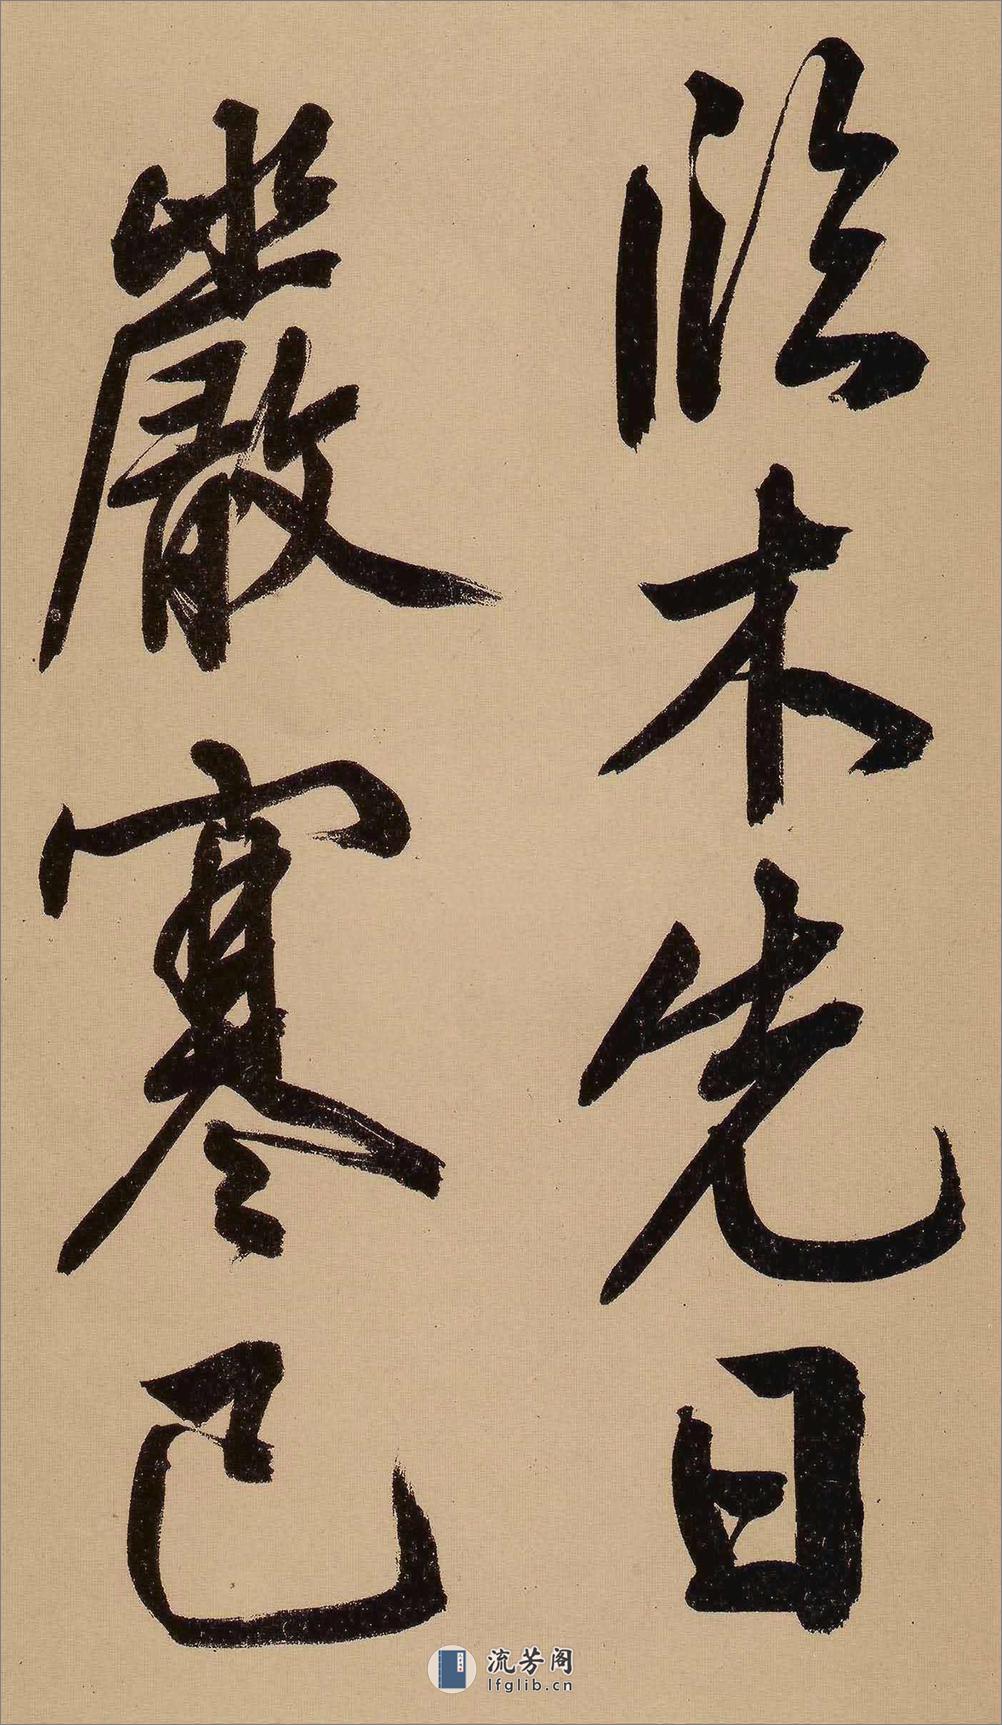 臨木先日
嚴寒已
流芳阁
lfglib.cn